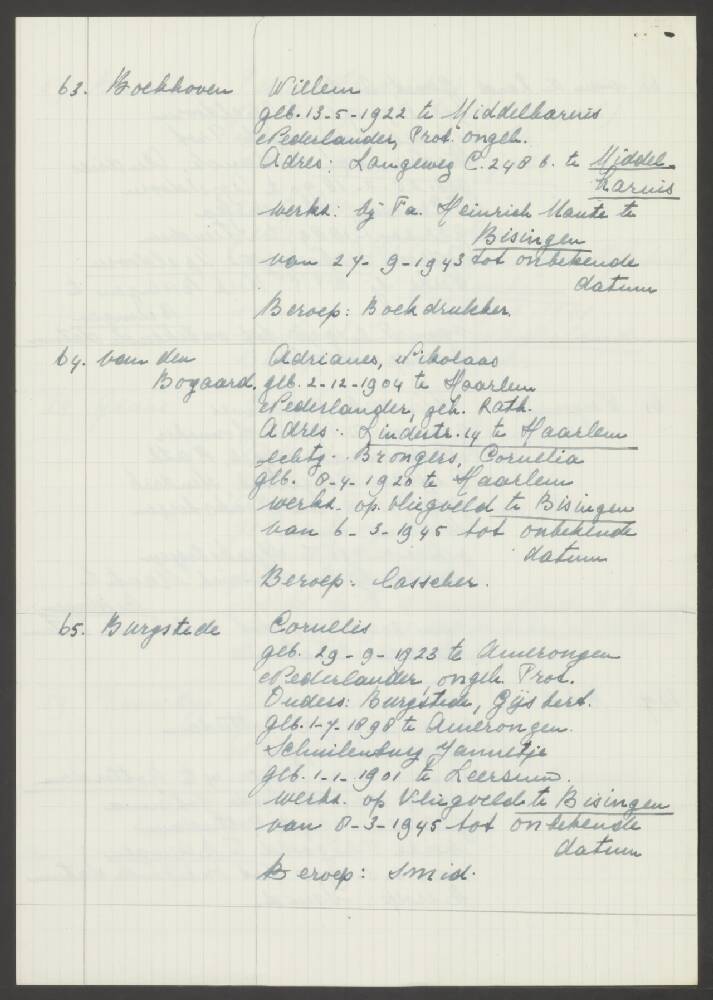 63. Boekhoven Willem
geb. 13-5-1922 te Middelharnis
Nederlander, Prot. ongeh.
Adres: Langeweg C. 248 b. te Middel-
harnis
werkz: bij Fa. Heinrich Maute te
Bisingen
van 27-9-1943 tot onbekende
datum
Beroep: Boekdrukker.
64. van den Adrianus, Nikolaas
Bogaard. geb. 2-12-1904 te Haarlem
Nederlander, geh. Kath.
Adres: Lindestr. 14 te Haarlem
echtg. Brongers, Cornelia
geb. 8-4-1920 te Haarlem
werkz. op vliegveld te Bisingen
van 6-3-1945 tot onbekende
datum
Beroep: Casscher.
65. Burgstede Cornelis
geb. 29-9-1923 te Amerongen
Nederlander, ongeh. Prot.
Ouders: Burgstede, Gijsbert.
geb. 1-7-1898 te Amerongen.
Schuilenburg Jannetje
geb. 1-1-1901 te Leersum.
werkz. op Vliegveld te Bisingen
van 8-3-1945 tot onbekende
datum
Beroep: smid.